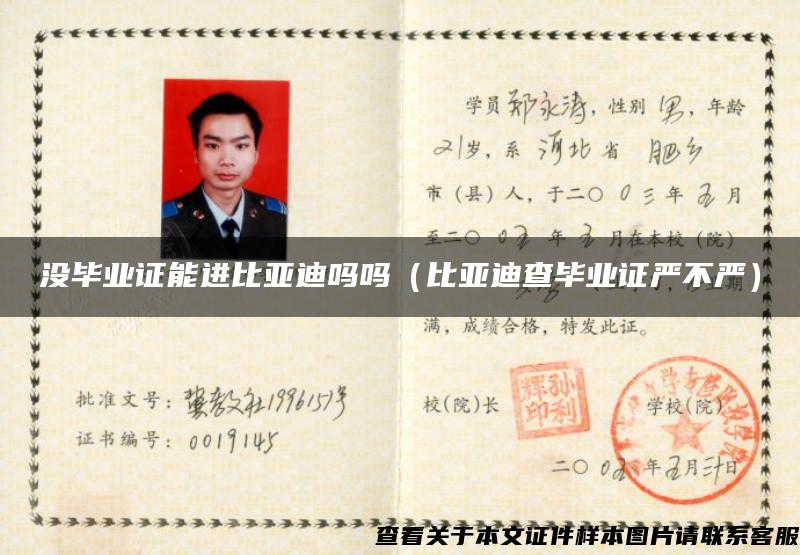 学员郑永涛，性别 男，年龄
21岁，系 河北 省 肥乡
市（县）人，于二〇 0三 年 五 月
至二〇 0五 年 五 月在本校（院）
没毕业证能进比亚迪吗吗（比亚迪查毕业证严不严）
满，成绩合格，特发此证。
批准文号：冀教文社1996151号
证书编号：0019145
校(院)长
孙利
辉印
学校(院)
二〇 0五 年 五 月 三十日
查看关于本文证件样本图片请联系客服